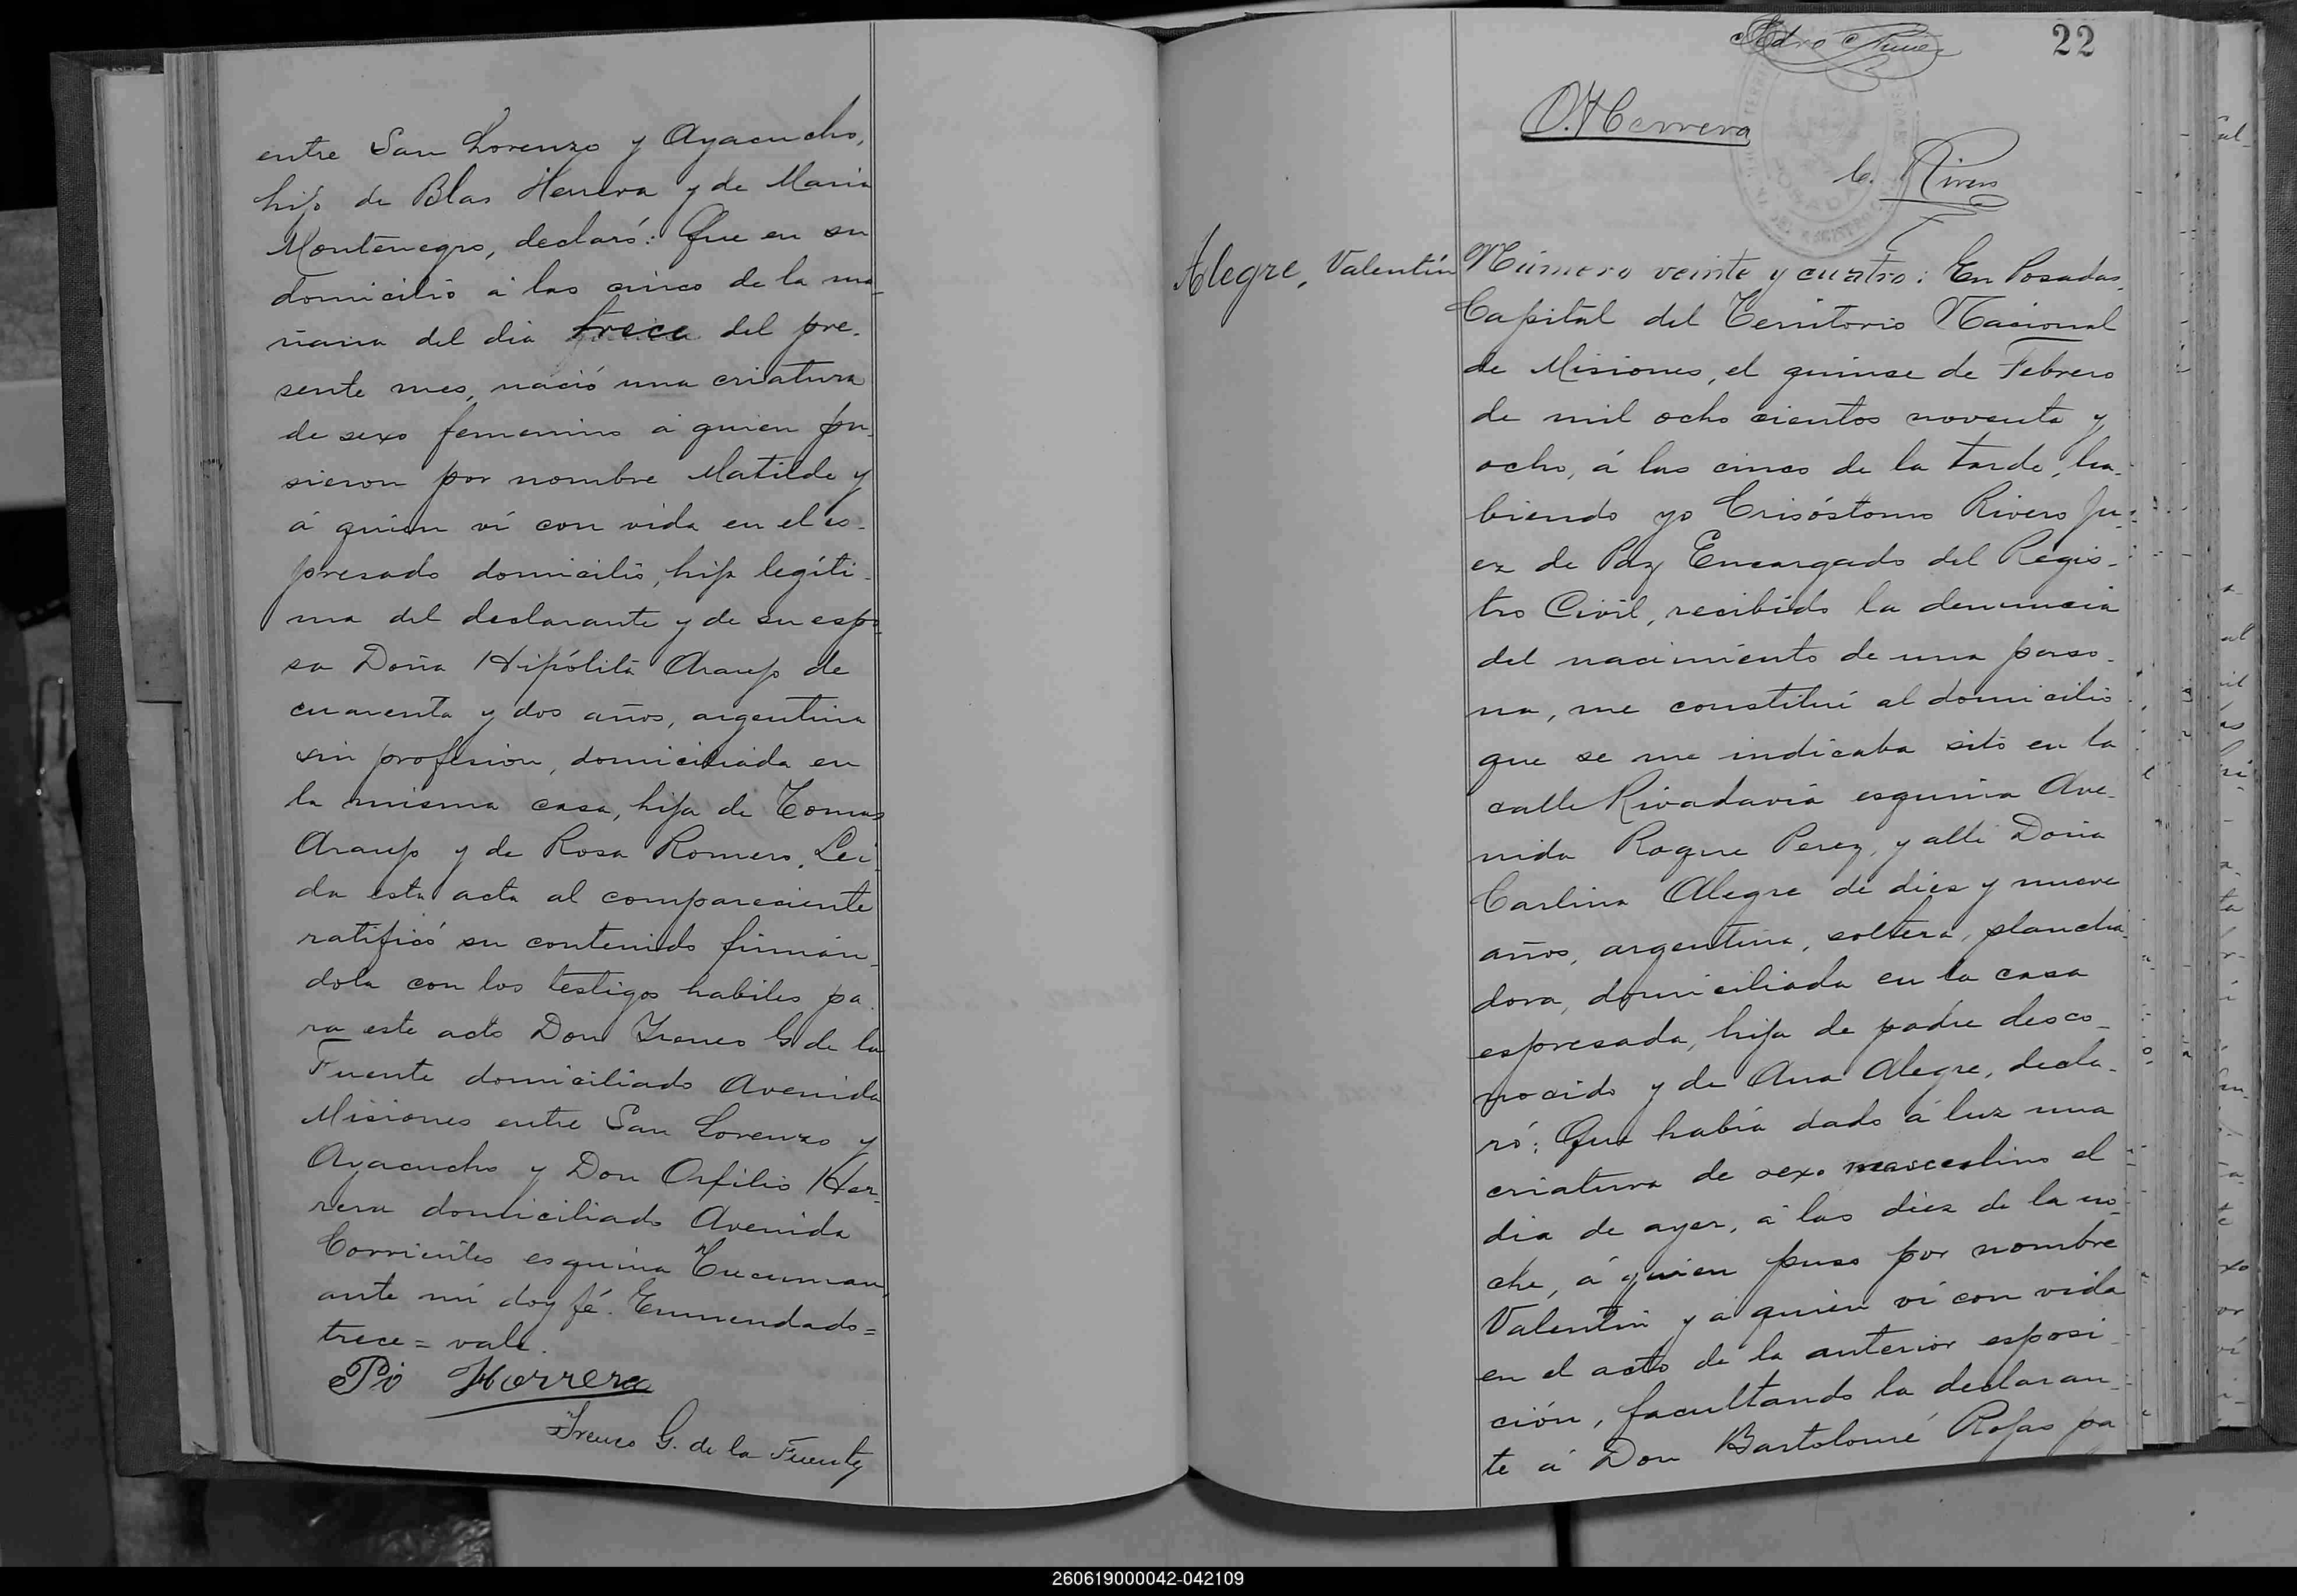 entre San Lorenzo y Ayacucho,
hijo de Blas Herrera y de Maria
Montenegro, declaró: Que en su
domicilio á las cinco de la ma-
ñana del dia trece del pre-
sente mes, nació una criatura
de sexo femenino á quien pu-
sieron por nombre Matilde y
á quien ví con vida en el es-
presado domicilio, hija legíti-
ma del declarante y de su espo-
sa Doña Hipólita Araujo de
cuarenta y dos años, argentina
sin profesion, domiciliada en
la misma casa, hija de Tomas
Araujo y de Rosa Romero. Lei-
da esta acta al compareciente
ratificó su contenido firmán-
dola con los testigos habiles pa-
ra este acto Don Ireneo G de la
Fuente domiciliado Avenida
Misiones entre San Lorenzo y
Ayacucho y Don Orfilio Her-
rera domiciliado Avenida
Corrientes esquina Tucuman,
ante mí doy fé. Enmendado=
trece=vale.
Pio Herrera
Ireneo G. de la Fuente
22
O. Herrera
C. Rivero
Alegre, Valentín
Número veinte y cuatro: En Posadas,
Capital del Territorio Nacional
de Misiones, el quinse de Febrero
de mil ocho cientos noventa y
ocho, á las cinco de la tarde, ha-
biendo yo Crisóstomo Rivero Ju-
ez de Paz Encargado del Regis-
tro Civil, recibido la denuncia
del nacimiento de una perso-
na, me constituí al domicilio
que se me indicaba sito en la
calle Rivadavia esquina Ave-
nida Roque Perez, y alli Doña
Carlina Alegre de diez y nueve
años, argentina, soltera, plancha-
dora, domiciliada en la casa
espresada, hija de padre desco-
nocido y de Ana Alegre, decla-
ró: Que había dado á luz una
criatura de sexo masculino el
dia de ayer, á las diez de la no-
che, á quien puso por nombre
Valentin y á quien ví con vida
en el acto de la anterior esposi-
ción, facultando la declaran-
te á Don Bartolomé Rojas pa
260619000042-042109